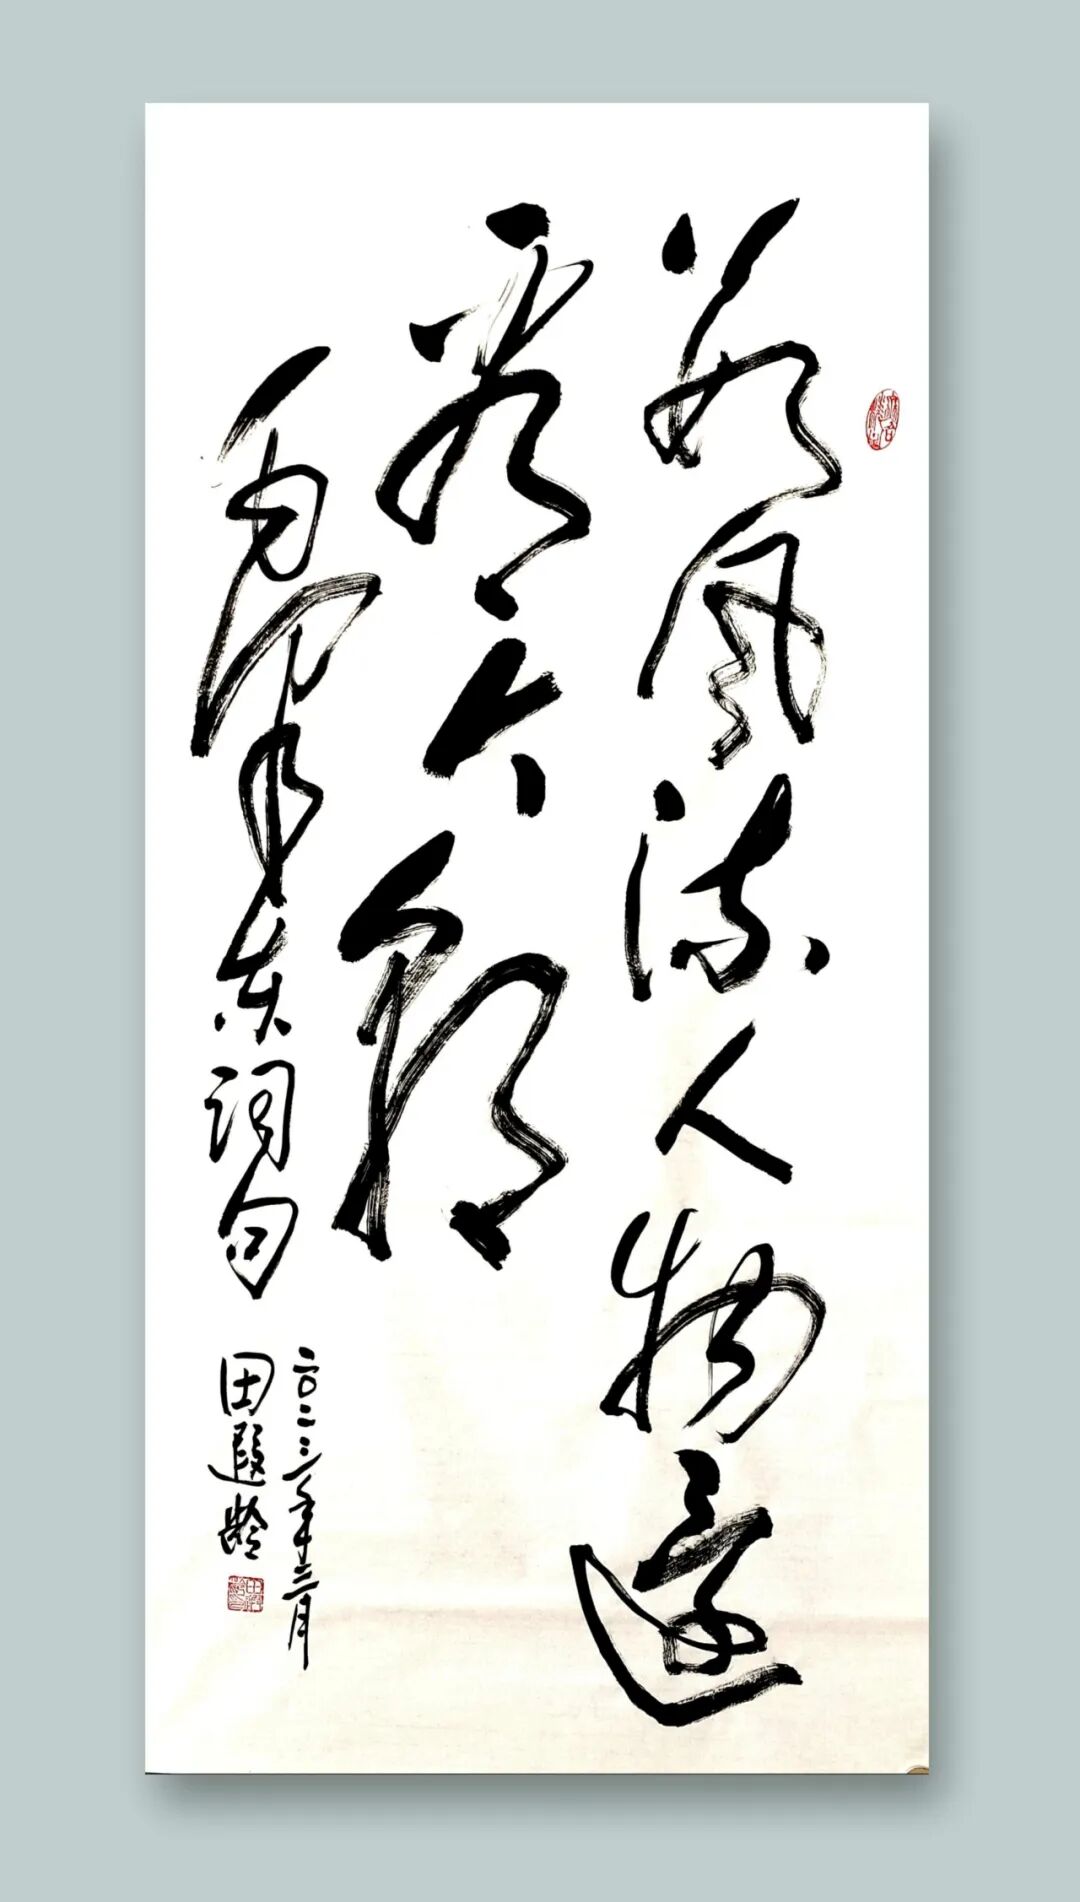 数风流人物还
看今朝
毛泽东词句
二〇二三年三月
田遐龄